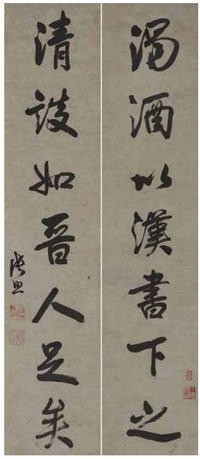 濁酒以漢書下之
清談如晉人足矣
張照